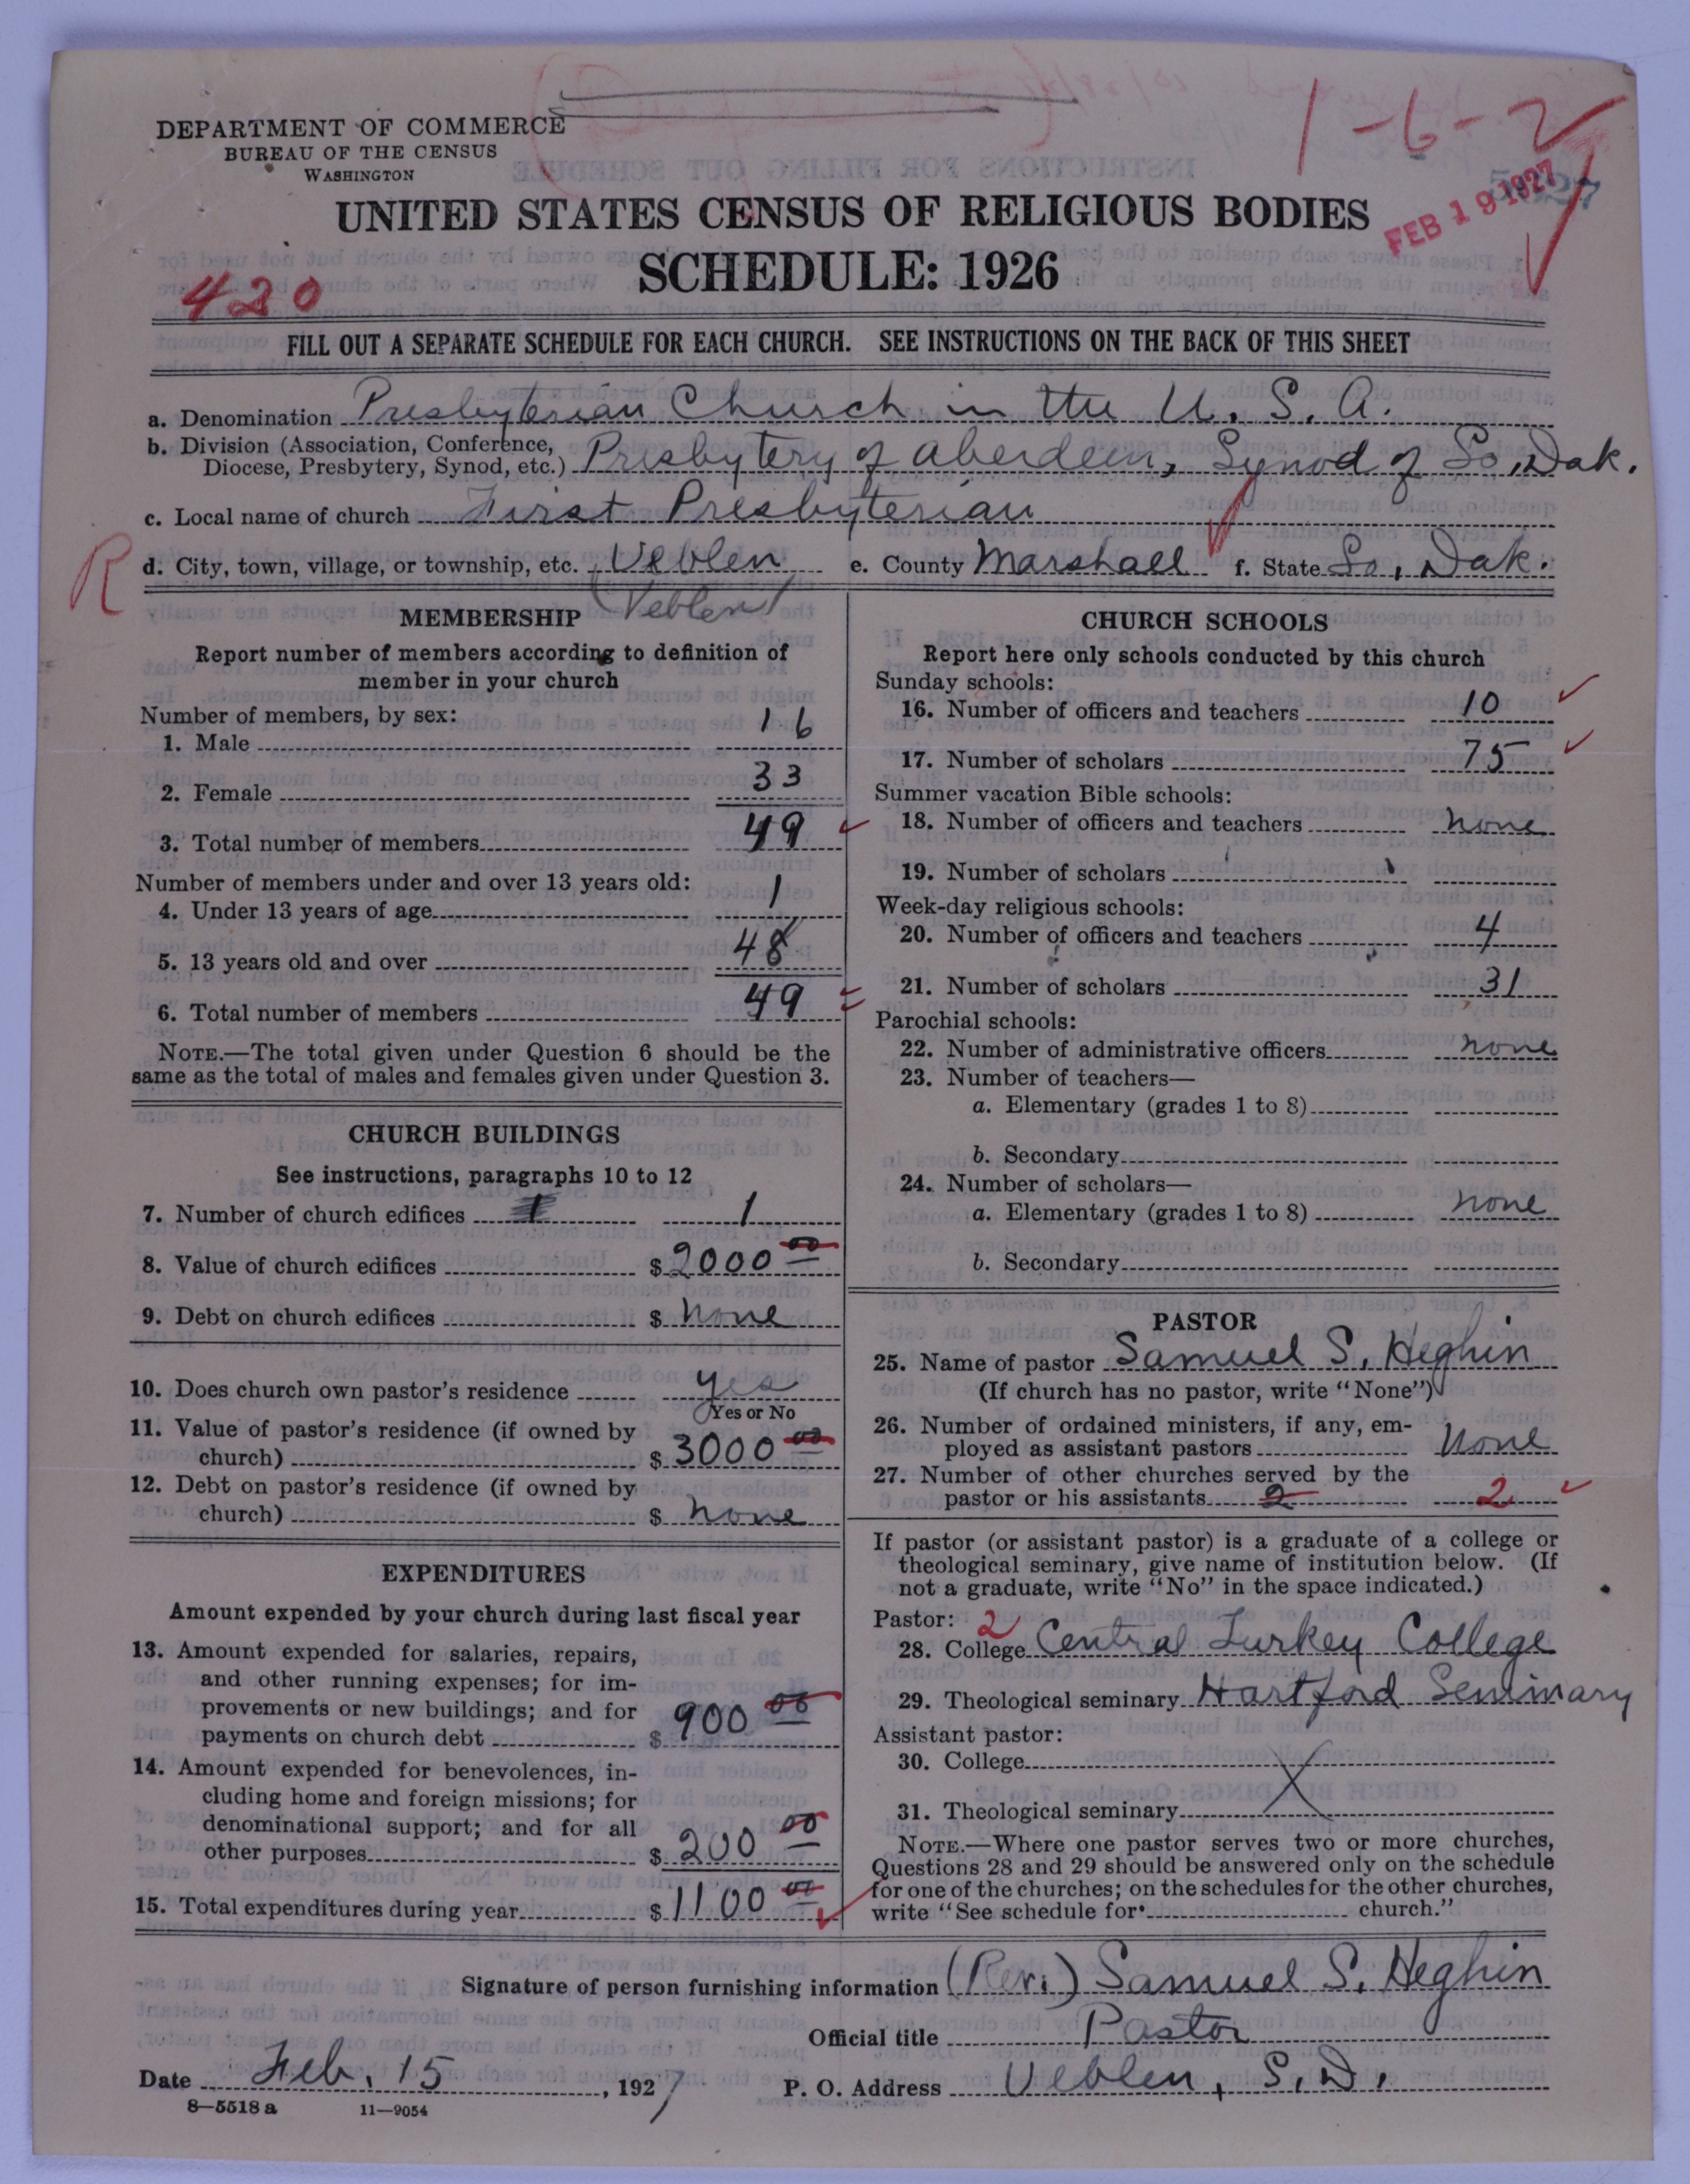 DEPARTMENT OF COMMERCE
BUREAU OF THE CENSUS
WASHINGTON
1-6-2
FEB 19 1927
UNITED STATES CENSUS OF RELIGIOUS BODIES
SCHEDULE: 1926
420
FILL OUT A SEPARATE SCHEDULE FOR EACH CHURCH. SEE INSTRUCTIONS ON THE BACK OF THIS SHEET
a. Denomination Presbyterian Church in the U. S. A.
b. Division (Association, Conference, Diocese, Presbytery, Synod, etc.) Presbytery of Aberdeen, Synod of So. Dak.
c. Local name of church First Presbyterian
R
d. City, town, village, or township, etc. Veblen e. County Marshall f. State So. Dak.
(Veblen)
MEMBERSHIP
Report number of members according to definition of
member in your church
Number of members, by sex:
1. Male 16
2. Female 33
3. Total number of members 49
Number of members under and over 13 years old:
4. Under 13 years of age 1
5. 13 years old and over 48
6. Total number of members 49
NOTE.—The total given under Question 6 should be the
same as the total of males and females given under Question 3.
CHURCH BUILDINGS
See instructions, paragraphs 10 to 12
7. Number of church edifices 1 1
8. Value of church edifices $ 2000 00
9. Debt on church edifices $ none
10. Does church own pastor's residence yes
Yes or No
11. Value of pastor's residence (if owned by
church) $ 3000 00
12. Debt on pastor's residence (if owned by
church) $ none
EXPENDITURES
Amount expended by your church during last fiscal year
13. Amount expended for salaries, repairs,
and other running expenses; for im-
provements or new buildings; and for
payments on church debt $ 900 00
14. Amount expended for benevolences, in-
cluding home and foreign missions; for
denominational support; and for all
other purposes $ 200 00
15. Total expenditures during year $ 1100 00
CHURCH SCHOOLS
Report here only schools conducted by this church
Sunday schools:
16. Number of officers and teachers 10
17. Number of scholars 75
Summer vacation Bible schools:
18. Number of officers and teachers none
19. Number of scholars
Week-day religious schools:
20. Number of officers and teachers 4
21. Number of scholars 31
Parochial schools:
22. Number of administrative officers none
23. Number of teachers—
a. Elementary (grades 1 to 8)
b. Secondary
24. Number of scholars—
a. Elementary (grades 1 to 8) none
b. Secondary
PASTOR
25. Name of pastor Samuel S. Heghin
(If church has no pastor, write "None")
26. Number of ordained ministers, if any, em-
ployed as assistant pastors None
27. Number of other churches served by the
pastor or his assistants 2 2
If pastor (or assistant pastor) is a graduate of a college or
theological seminary, give name of institution below. (If
not a graduate, write "No" in the space indicated.)
Pastor: 2
28. College Central Turkey College
29. Theological seminary Hartford Seminary
Assistant pastor:
30. College
31. Theological seminary
NOTE.—Where one pastor serves two or more churches,
Questions 28 and 29 should be answered only on the schedule
for one of the churches; on the schedules for the other churches,
write "See schedule for church."
Signature of person furnishing information (Rev.) Samuel S. Heghin
Official title Pastor
Date Feb. 15, 1927 P. O. Address Veblen, S. D.
8—5518 a 11—9054